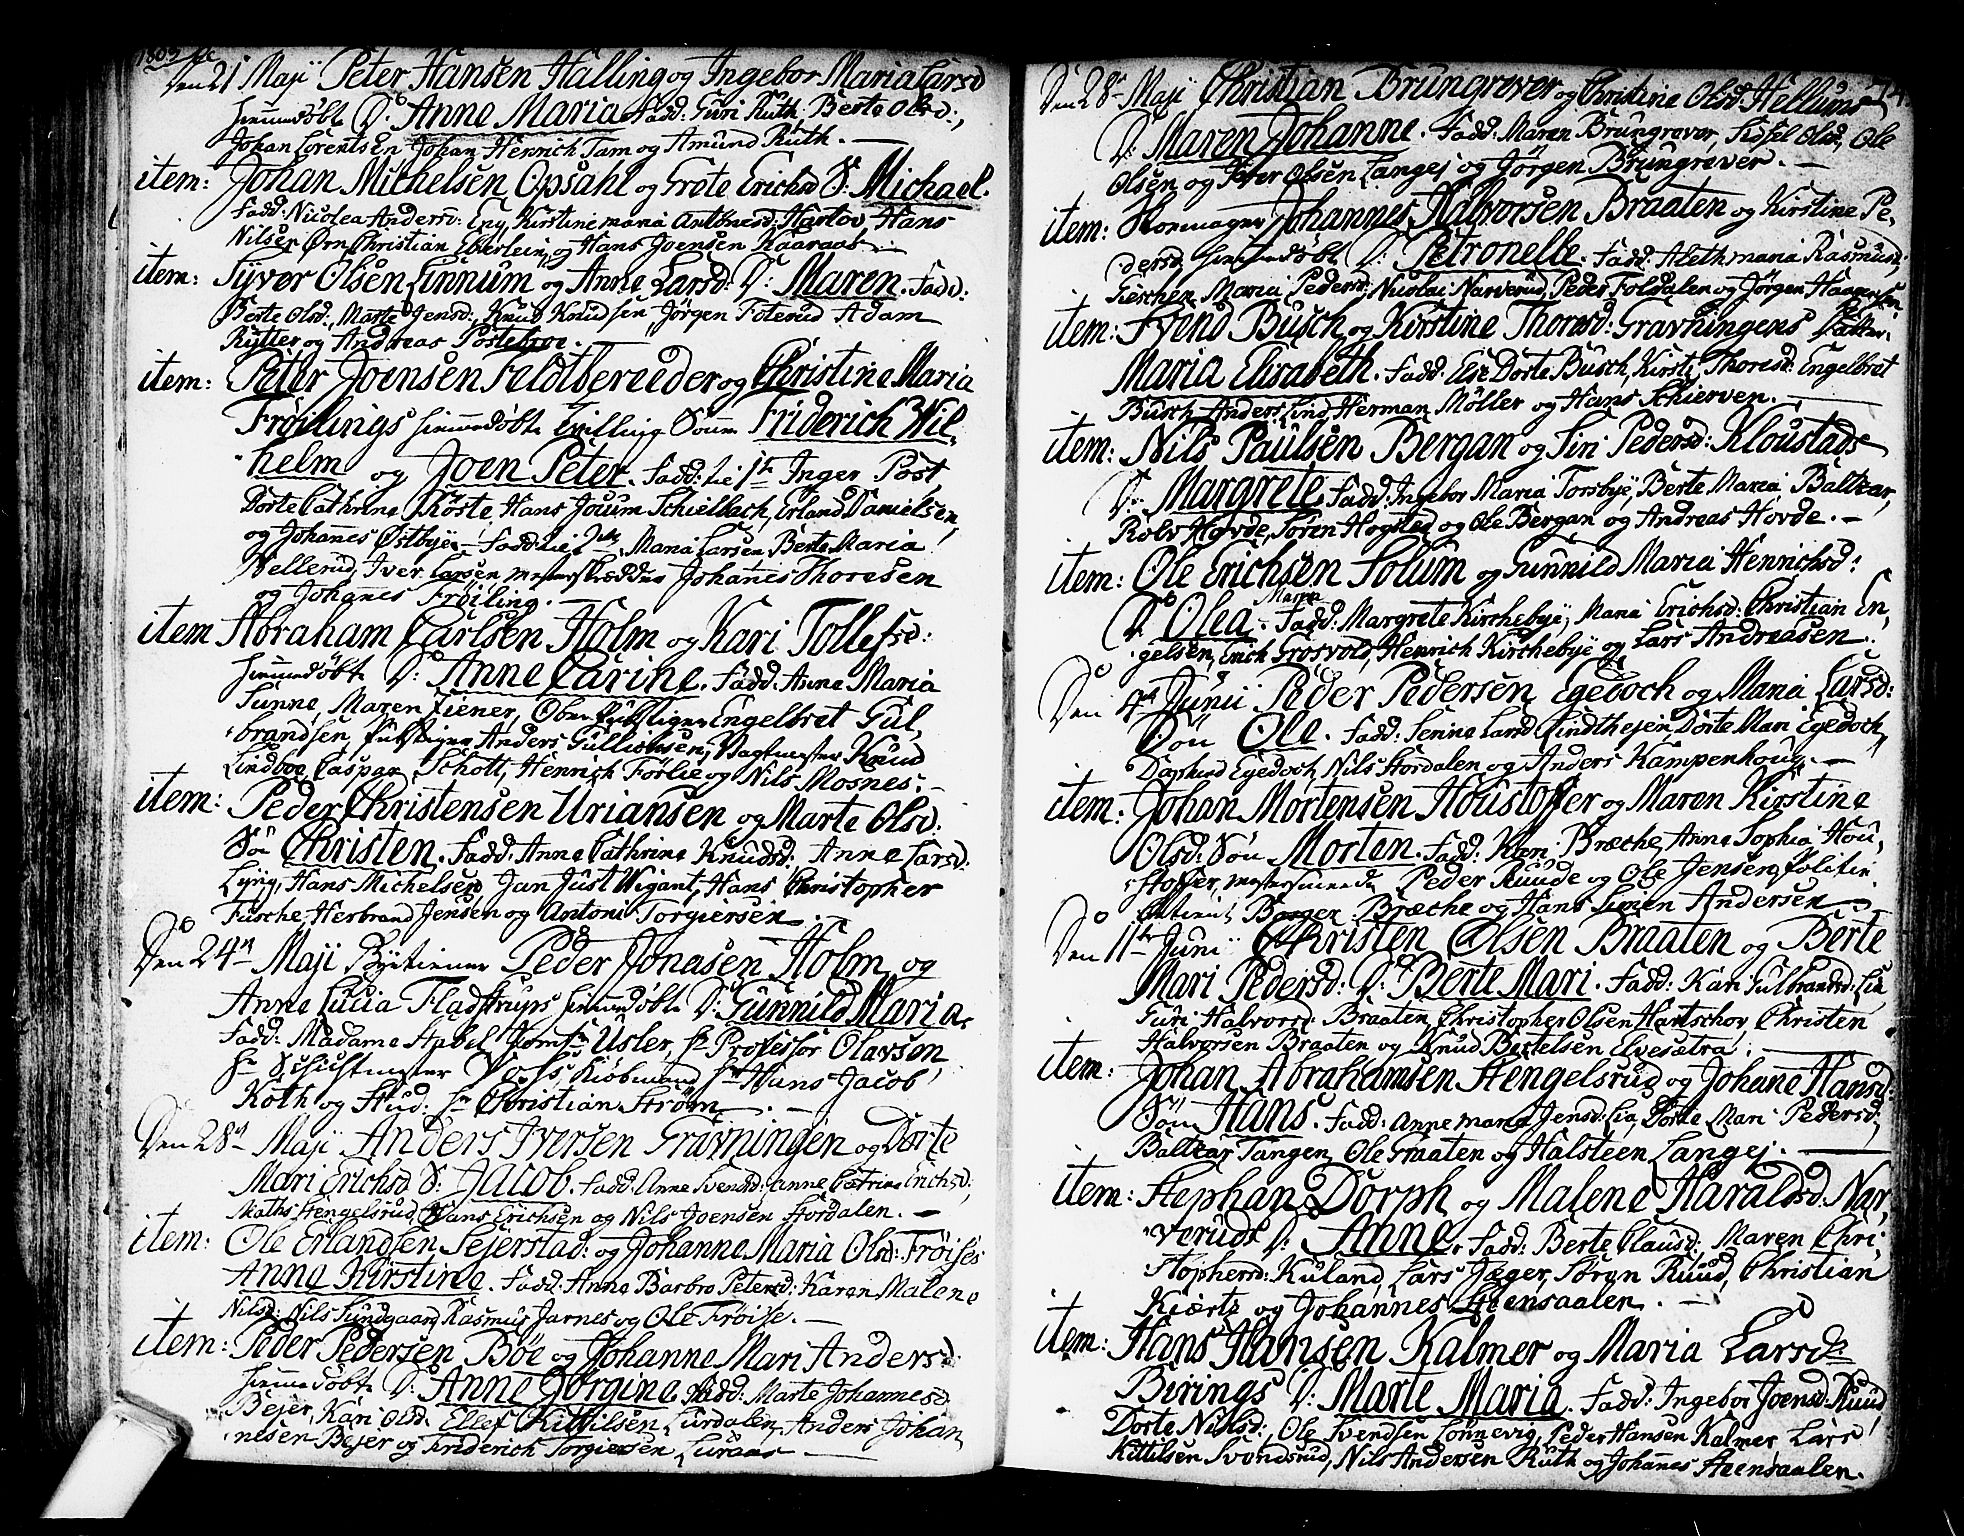 1809
Den 21 Maji Peter Hansen Halling og Ingebor Maria Larsd
hiemmedöbte D: Anne Maria Fadd: Guri Ruth, Berte Olsd:,
Johan Lorentsen Johan Henrich Tam og Amund Ruth. —
item: Johan Michelsen Opsahl og Grete Erichsd S: Michael.
Fadd: Nicolea Andersd: Eny, Kirstine maria Antonesd: Hartov Hans
Nilsen Ørn Christian Eberlein, og Hans Joensen Kaaraas.
item: Syver Olsen Linnum og Anne Larsd: D: Maren. Fadd:
Berte Olsd:, Marte Jensd:, Knud Knudsen Jörgen Foterud Adam
Rytter og Andreas Posteboe.
item: Peter Joensen Feldtbereeder og Christine Maria
Fröilings hiemmedöbte Tvilling Sönn Friderich Wil,
helm og Joen Peter. Fadd: til 1te Inger Post,
Dorte Cathrine Röste, Hans Jouum Schielbach, Erland Danielsen,
og Johannes Østbye. Fadd: til 2den Maria Larsen Berte Maria
Nellerud, Iver Larsen mesterskrædder Johannes Thoresen
og Johanes Fröiling. —
item Abraham Carlsen Holm og Kari Tollefsd:
hiemmedöbte D: Anne Carine. Fadd: Anne Maria
Sunne, Maren Ziener, Ober Engelbret Gul,
brandsen, Anders Gullichsen, Vagtmester Knud
Lindboe Caspar Schott, Henrich Förlie og Nils Mosnes. —
item: Peder Christensen Uriansen og Marte Olsd:
Sön Christen. Fadd: Anne Cathrine Knudsd: Anne Larsd:
Lyng, Hans Michelsen Jan Just Wigant, Hans Christopher
Fusche, Herbrand Jensen og Antoni Torgiersen.
Den 24de Maji Peder Jonasen Holm og
Anne Lucia Fladstrups hiemmedöbte D: Gunnild Maria.
Fadd: Madame Abel Jomfr Usler, Hr Professor Olavsen
Hr Schichtmester Vosfs, Kiöbmand Hr Hans Jacob
Roth og Stud: Hr Christian Ström. —
Den 28de Maji Anders Iversen Gravningen og Dorte
Mari Erichsd S: Jacob. Fadd: Anne Svensd: Anne Catrine Erichsd:,
Maths Hengelsrud, Hans Erichsen og Nils Joensen Stordalen. —
item: Ole Erlandsen Sejerstad: og Johanne Maria Olsd: Fröises
Anne Kirstine. Fadd: Anne Barbro Petersd: Karen Malene
Nilsd: Nils Sundgaard Rasmus Jarnes og Ole Fröise. —
item: Peder Pedersen Böe og Johanne Mari Andersd
hiemmedöbte D: Anne Jörgine. Fadd: Marte Johannesd
Bejer, Kari Olsd. Ellef Kittilsen Lurdalen, Anders Johan
nesen Bejer og Friderich Torgiersen Luraas —
Den 28de Maji Christian Brungrøver og Christine Olsd: Hellums
D: Maren Johanne. Fadd: Maren Brungrøver, Sidsel Olsd, Ole
Olsen og Peter Olsen Langej og Jörgen Brungrøver. —
item: Skomager Johannes Halvorsen Braaten og Kirstine Pe,
dersd. hiemmedöbte D: Petronelle. Fadd: Alethmaria Rasmusd:,
Gieschen Maria Pedersd, Nicolai Narverud, Peder Foldalen og Jörgen Haagensen.
item: Svend Busch og Kirstine Thorsd: Gravningens Datter.
Maria Elisabeth. Fadd: Else Dorte Busch, Kirsti Thoresd: Engelbret
Busch Anders Lind, Herman Möller og Hans Schierven. —
item: Nils Paulsen Bergan og Siri Pedersd: Kloustads
D: Margrete. Fadd: Ingebor Maria Torsbye, Berte Maria Baltzar,
Rolv Hovde, Sören Hogsted og Ole Bergan og Andreas Hovde. —
item: Ole Erichsen Solum og Gunnild Maria Henrichsd:
D: Olea Maria. Fadd: Margrete Kirchebye, Maria Erichsd: Christian En,
gelsen, Erich Grosvold, Henrich Kirchebye og Lars Andreasen.
Den 4de Junii Peder Pedersen Egedoch og Maria Larsd:
Sön Ole. Fadd: Senne Larsd Lindthejen, Dorte Mari Egedoch,
Daphird Egedoch Nils Stordalen og Anders Kampenhoug. —
item: Johan Mortensen Houstoffer og Maren Kirstine
Olsd: Sön Morten. Fadd: Karen Bræche, Anne Sophia Hou,
stoffer, mestersmed Peder Ruude og Ole Jensen Politie
betient Borger Bræche og Hans Simen Andersen —
Den 11te Junii Christen Olsen Braaten og Berte
Mari Pedersd: D: Berte Mari. Fadd: Kari Gulbrandsd: Lia
Guri Halvorsd: Braaten, Christopher Olsen Hartschov, Christen
Halvorsen Braaten og Knud Bertelsen Elvesætra. —
item: Johan Abrahamsen Hengelsrud og Johane Hansd:
Sön Hans. Fadd: Anne maria Jensd: Lia, Dorte Mari Pedersd:,
Baltzar Tangen, Ole Graaten og Halsteen Langej. —
item: Stephan Dorph og Malene Haraldsd: Nar,
veruds D: Anne. Fadd: Berte Clausd:, Maren Chri,
stophersd: Ruland, Lars Jæger, Sören Ruud, Christian
Kiærtz og Johannes Steensaalen. —
item: Hans Hansen Kalmer og Maria Larsdr
Birings D: Marte Maria. Fadd: Ingebor Joensd: Ruud
Dorte Nilsd:, Ole Svendsen Lonnevig, Peder Hansen Kalmer, Lars
Kittilsen Svendsrud, Nils Andersen Ruth og Johanes Steensaalen.